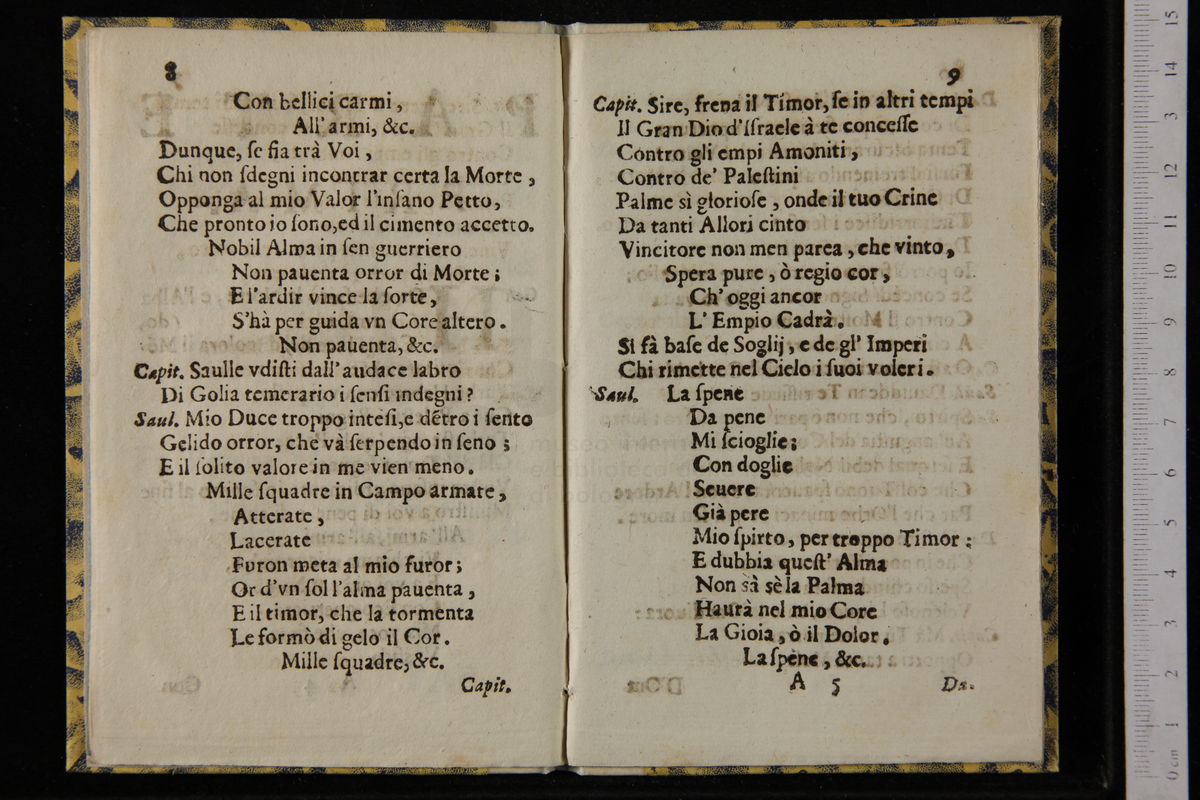 8
Con bellici carmi,
All'armi, &c.
Dunque, ſe ſia trà Voi,
Chi non ſdegni incontrar certa la Morte,
Opponga al mio Valor l'inſano Petto,
Che pronto io ſono, ed il cimento accetto.
Nobil Alma in ſen guerriero
Non pauenta orror di Morte;
E l'ardir vince la ſorte,
S'hà per guida vn Core altero.
Non pauenta, &c.
Capit. Saulle vdiſti dall'audace labro
Di Golia temerario i ſenſi indegni?
Saul. Mio Duce troppo inteſi, e dẽtro i ſento
Gelido orror, che và ſerpendo in ſeno;
E il ſolito valore in me vien meno.
Mille ſquadre in Campo armate,
Atterate,
Lacerate
Furon meta al mio furor;
Or d'vn ſol l'alma pauenta,
E il timor, che la tormenta
Le formò di gelo il Cor.
Mille ſquadre, &c.
Capit.
9
Capit. Sire, frena il Timor, ſe in altri tempi
Il Gran Dio d'Iſraele à te conceſſe
Contro gli empi Amoniti,
Contro de' Paleſtini
Palme sì glorioſe, onde il tuo Crine
Da tanti Allori cinto
Vincitore non men parea, che vinto,
Spera pure, ò regio cor,
Ch' oggi ancor
L' Empio Cadrà.
Si fà baſe de Soglij, e de gl' Imperi
Chi rimette nel Cielo i ſuoi voleri.
Saul. La ſpene
Da pene
Mi ſcioglie;
Con doglie
Seuere
Già pere
Mio ſpirto, per troppo Timor:
E dubbia queſt' Alma
Non sà sè la Palma
Haurà nel mio Core
La Gioia, ò il Dolor.
La ſpène, &c.
A 5
Da.
0 cm 1 2 3 4 5 6 7 8 9 10 11 12 13 14 15